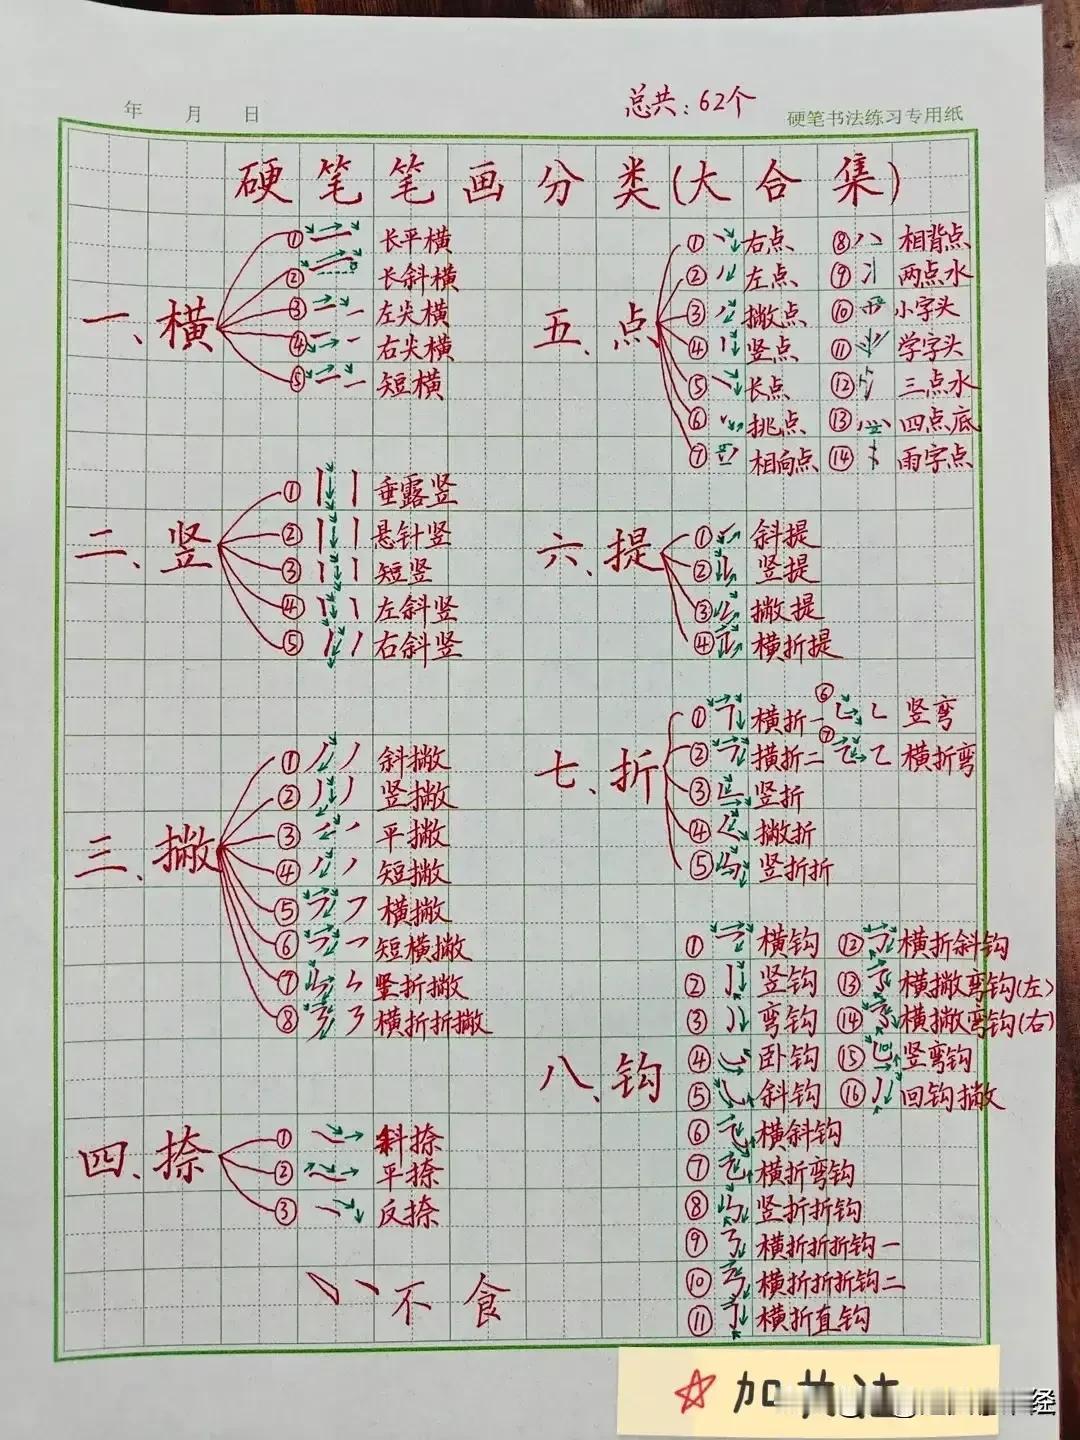 年 月 日
总共：62个
硬笔书法练习专用纸
硬笔笔画分类(大合集)
一、横
① 长平横
② 长斜横
③ 左尖横
④ 右尖横
⑤ 短横
二、竖
① 垂露竖
② 悬针竖
③ 短竖
④ 左斜竖
⑤ 右斜竖
三、撇
① 斜撇
② 竖撇
③ 平撇
④ 短撇
⑤ 横撇
⑥ 短横撇
⑦ 竖折撇
⑧ 横折折撇
四、捺
① 斜捺
② 平捺
③ 反捺
不食
五、点
① 右点
② 左点
③ 撇点
④ 竖点
⑤ 长点
⑥ 挑点
⑦ 相向点
⑧ 相背点
⑨ 两点水
⑩ 小字头
⑪ 学字头
⑫ 三点水
⑬ 四点底
⑭ 雨字点
六、提
① 斜提
② 竖提
③ 撇提
④ 横折提
七、折
① 横折一
② 横折二
③ 竖折
④ 撇折
⑤ 竖折折
⑥ 竖弯
⑦ 横折弯
八、钩
① 横钩
② 竖钩
③ 弯钩
④ 卧钩
⑤ 斜钩
⑥ 横斜钩
⑦ 横折弯钩
⑧ 竖折折钩
⑨ 横折折折钩一
⑩ 横折折折钩二
⑪ 横折直钩
⑫ 横折斜钩
⑬ 横撇弯钩(左)
⑭ 横撇弯钩(右)
⑮ 竖弯钩
⑯ 回钩撇
加
径